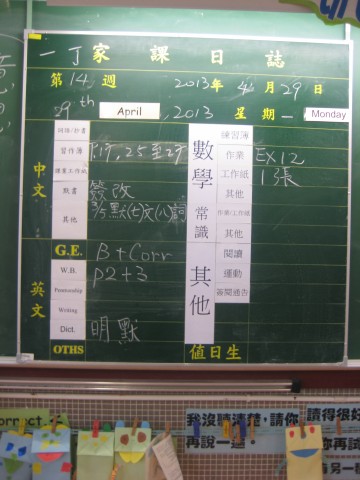 一丁家課日誌
第14週 2013年4月29日
29th April, 2013 星期一 Monday
中文
習作簿 P.17, 25至29
課業工作紙
默書 簽改
其他 3/5默(七)文(八)詞
英文
G.E. B+Corr
W.B. P2+3
Penmanship
Writing
Dict. 明默
OTHS
數學
練習簿
作業 EX12
工作紙 1張
其他
常識
作業/工作紙
其他
其他
閱讀
運動
簽閱通告
值日生
我沒聽清楚，請你
再說一遍！
讀得很好